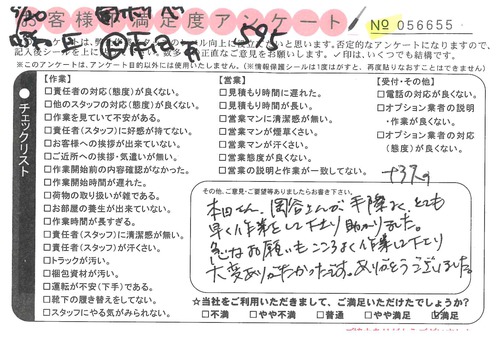 お客様満足度アンケート
№ 056655
595
記入後シールを上に
※このアンケートは、アンケート目的以外には使用いたしません。(※情報保護シールは1度はがすと、再度貼りなおすことはできません)
チェックリスト
【作業】
□責任者の対応(態度)が良くない。
□他のスタッフの対応(態度)が良くない。
□作業を見ていて不安がある。
□責任者(スタッフ)に好感が持てない。
□お客様への挨拶が出来ていない。
□ご近所への挨拶・気遣いが無い。
□作業開始前の内容確認がなかった。
□作業開始時間が遅れた。
□荷物の取り扱いが雑である。
□お部屋の養生が出来ていない。
□作業時間が長すぎる。
□責任者(スタッフ)に清潔感が無い。
□責任者(スタッフ)が汗くさい。
□トラックが汚い。
□梱包資材が汚い。
□運転が不安(下手)である。
□靴下の履き替えをしてない。
□スタッフにやる気がみられない。
【営業】
□見積もりに遅れた。
□見積もり時間が長い。
□営業マンに清潔感が無い。
□営業マンが煙草くさい。
□営業マンが汗くさい。
□営業態度が良くない。
□営業の説明と作業が一致してない。
【受付・その他】
□電話の対応が良くない。
□オプション業者の説明
・作業が良くない。
□オプション業者の対応
(態度)が良くない。
その他、ご意見・ご要望等ありましたらお書き下さい。
本田さん、岡谷さんが手際よく、とても
早く作業をして下さり助かりました。
急なお願いもこころよく作業して下さり
大変ありがたかったです。ありがとうございました。
☆当社をご利用いただきまして、ご満足いただけたでしょうか?
□不満 □やや不満 □普通 □やや満足 ☑満足